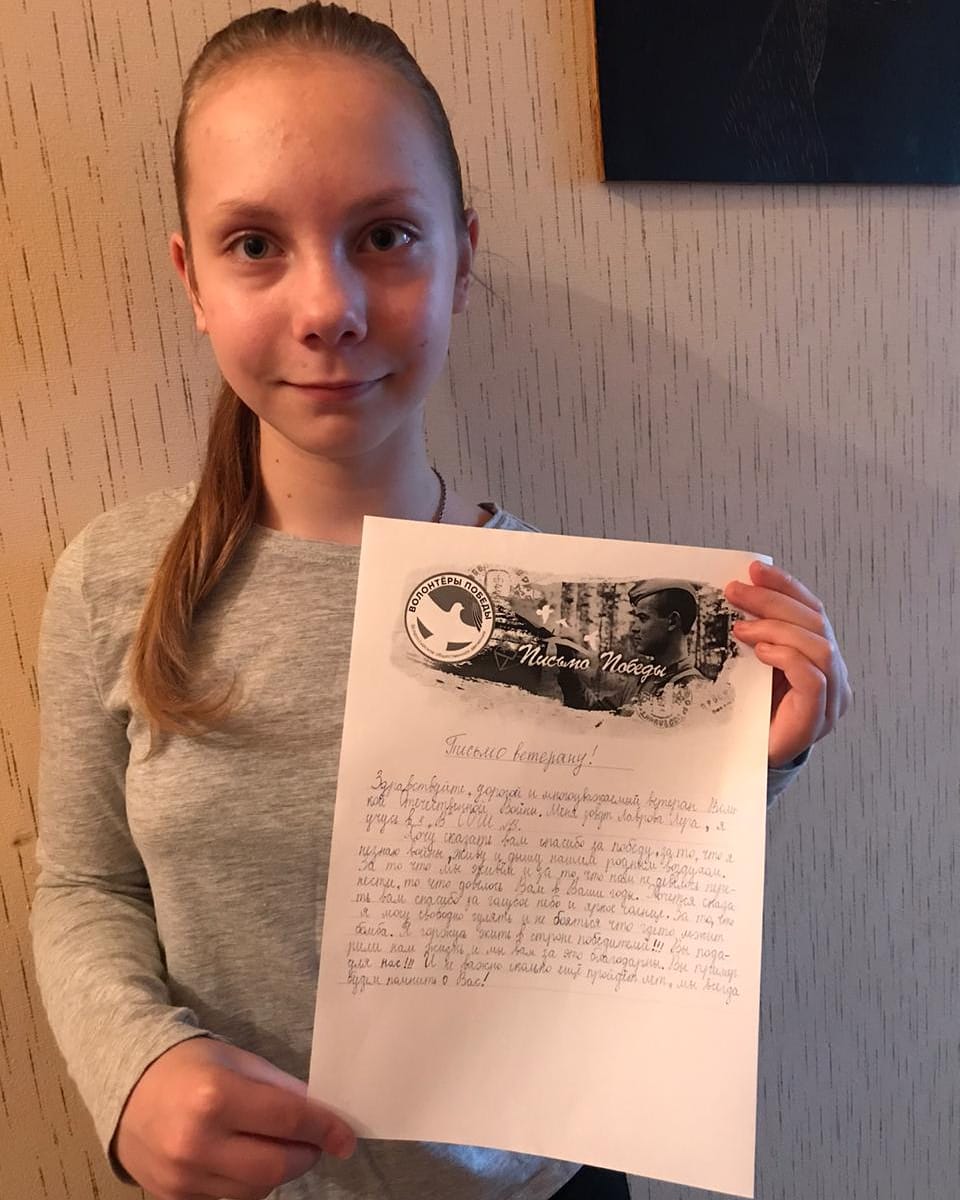 ВОЛОНТЁРЫ ПОБЕДЫ
Письмо Победы
Письмо ветерану!
Здравствуйте, дорогой и многоуважаемый ветеран Вели-
кой Отечественной Войны. Меня зовут Лаврова, я
учусь в В СОШ
Хочу сказать вам спасибо за победу, за то, что я
незнаю войны, живу и дышу нашим родным воздухом.
За то что мы живём и за то, что нам не довелось пере-
нести, то что довелось Вам в Ваши годы. Хочется сказа
ть вам спасибо за голубое небо и яркое солнце. За то, что
я могу свободно гулять и не бояться что где-то лежит
бомба. Я горжусь жить в стране победителей!!! Вы пода-
рили нам жизнь и мы вам за это благодарны. Вы пример
для нас!!! И не важно сколько ещё пройдёт лет, мы всегда
будем помнить о Вас!